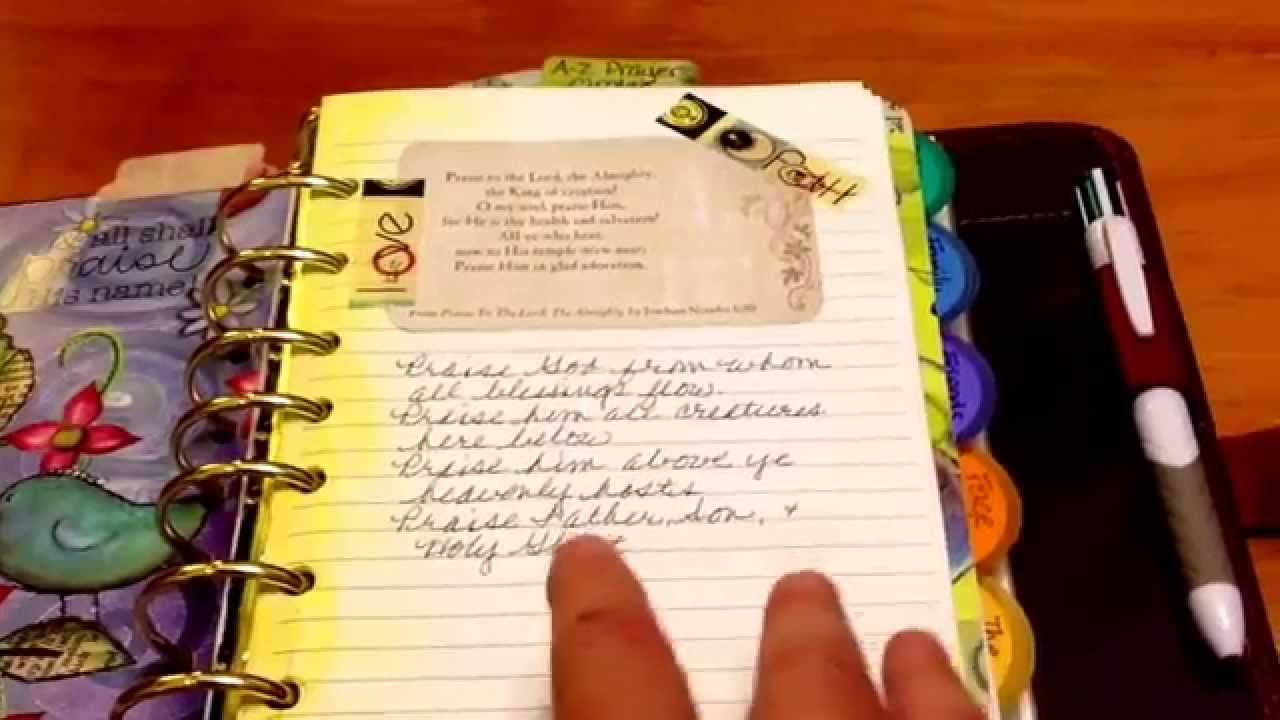 A-Z Prayer
all shall
praise
His name
love
Praise to the Lord, the Almighty,
the King of creation!
O my soul, praise Him,
for He is thy health and salvation!
All ye who hear,
now to His temple draw near;
Praise Him in glad adoration.
From Praise To The Lord, The Almighty by Joachim Neander
Praise God from whom
all blessings flow.
Praise him all creatures
here below
Praise him above ye
heavenly hosts
Praise Father, Son, +
Holy Ghost
Family
The